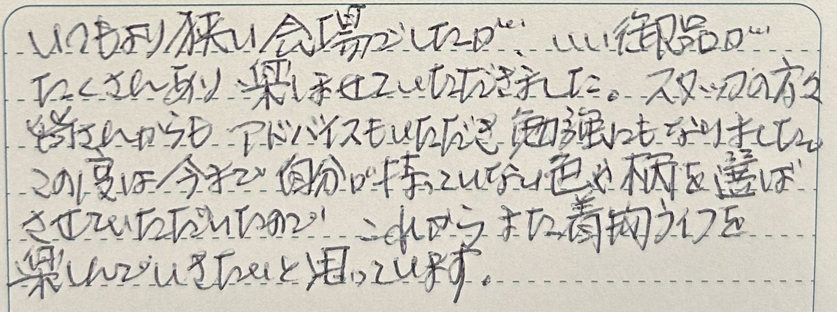 いつもより狭い会場でしたが、いい御品が
たくさんあり楽しませていただきました。スタッフの方々
皆さんからもアドバイスもいただき勉強にもなりました。
この度は今まで自分が持っていない色や柄を選ば
させていただいたので これからまた着物ライフを
楽しんでいきたいと思っています。